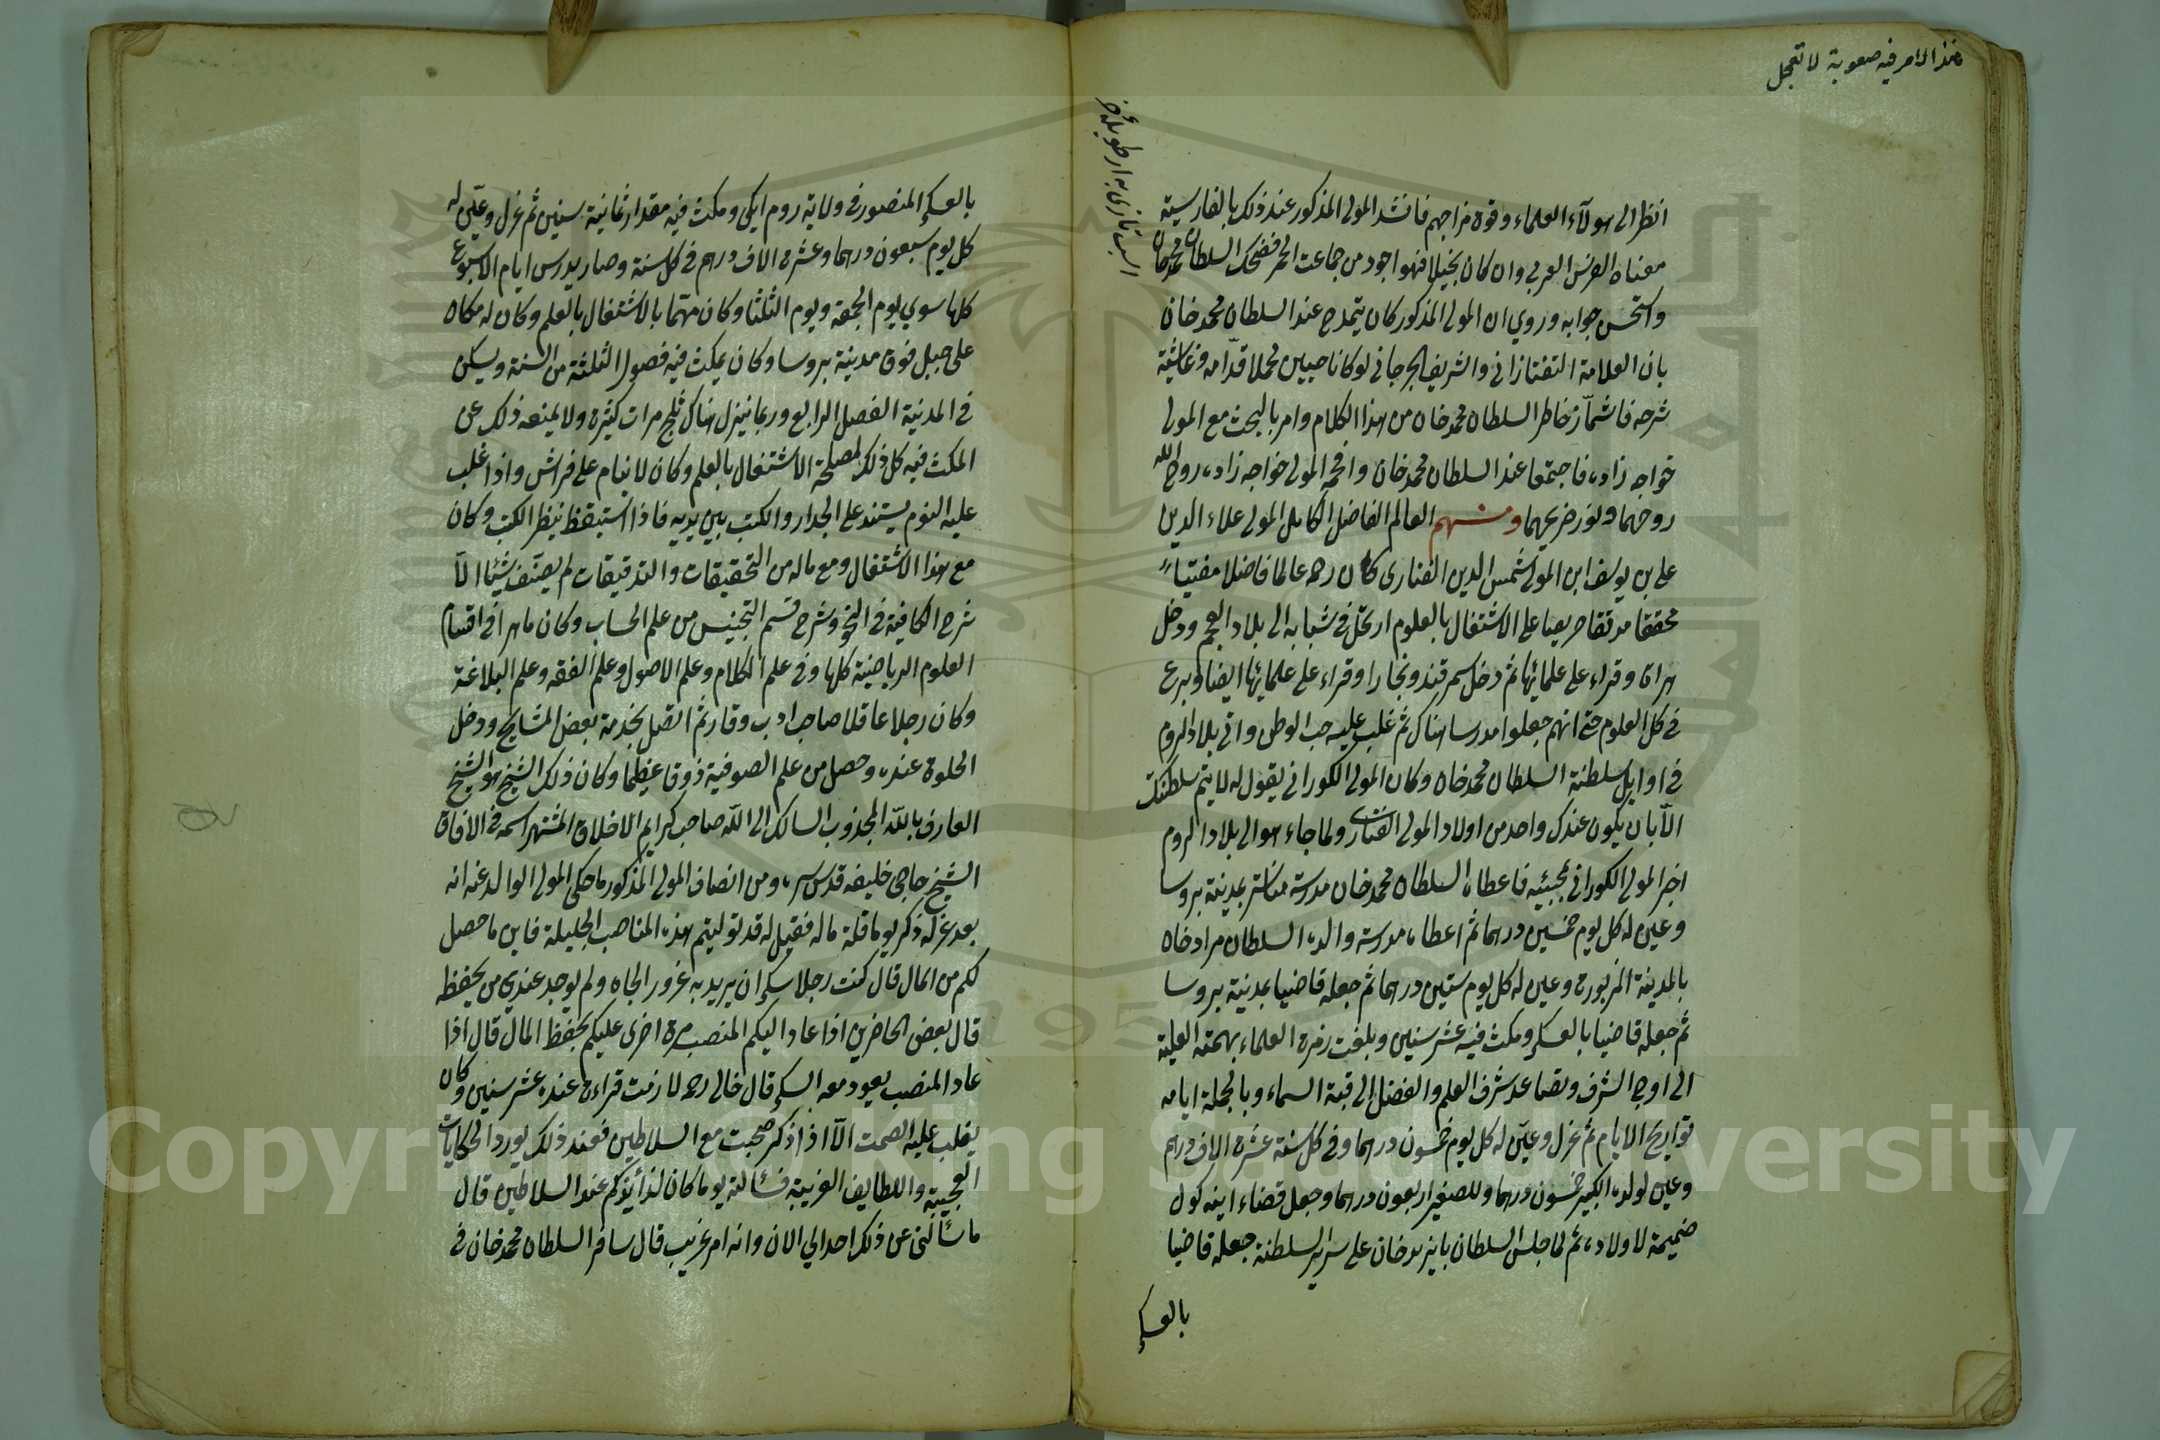 هذا الامر فيه صعوبة لا تعجل
انظر الى هولآء العلماء وقوة مزاجهم فانشد المولى المذكور عند ذلك بالفارسية
معناه الفرس العربي وان كان بخيلا فهو اجود من جماعت الحمر فضحك السلطان محمد خان
واستحسن جوابه وروي ان المولى المذكور كان يتمدح عند السلطان محمد خان
بان العلامة التفتازاني والشريف الجرجاني لوكانا حيين لحملا قدّامه وغاشية
شرحه فاشمأز خاطر السلطان محمد خان من هذا الكلام وامر بالبحث مع المولى
خواجه زاده فاجتمعا عند السلطان محمد خان وافحمه المولى خواجه زاده روح الله
روحهما ونور ضريحهما ومنهم العالم الفاضل الكامل المولى علاء الدين
على بن يوسف ابن المولى شمس الدين الفنارى كان رحمه عالما فاضلا مفتيا
محققا مدققا حريصا على الاشتغال بالعلوم ارتحل في شبابه الى بلاد العجم ودخل
هراة وقراء على علمائها ثم دخل سمرقند وبخارا وقراء على علمائها ايضا وبرع
في كل العلوم حتى انهم جعلوا مدرسا هناك ثم غلب عليه حب الوطن واتى بلاد الروم
في اوايل سلطنة السلطان محمد خان وكان المولى الكوراني يقول له لا يتم سلطنتك
الّا بان يكون عندك واحد من اولاد المولى الفنارى ولما جاء هو الى بلاد الروم
اخبر المولى الكوراني بمجيئه فاعطاه السلطان محمد خان مدرسة مناستر بمدينة بروسا
وعين له كل يوم خمسين درهما ثم اعطاه مدرسة والده السلطان مراد خان
بالمدينة المزبورة وعين له كل يوم ستين درهما ثم جعله قاضيا بمدينة بروسا
ثم جعله قاضيا بالعسكر ومكث فيه عشر سنين وبلغت زمرة العلماء بهمته العلية
الى اوج الشرف وتصاعد شرف العلم والفضل الى قبة السماء وبالجملة ايامه
تواريخ الايام ثم عزل وعيّن له كل يوم خمسون درهما وفي كل سنة عشرة الاف درهم
وعين لولده الكبير خمسون درهما وللصغير اربعون درهما وجعل قضاء اينه كول
ضميمة لاولاده ثم لما جلس السلطان بايزيد خان على سرير السلطنة جعله قاضيا
بالعسكر
بالعسكر المنصور في ولاية روم ايلى ومكث فيه مقدار ثمانية سنين ثم عزل وعيّن له
كل يوم سبعون درهما وعشرة الاف درهم في كل سنة وصار يدرس ايام الاسبوع
كلها سوي يوم الجمعة ويوم الثلثا وكان مهتما بالاشتغال بالعلم وكان له مكان
على جبل فوق مدينة بروسا وكان يمكث فيه فصول الثلثة من السنة ويسكن
في المدينة الفصل الرابع وربما ينزل هناك ثلج مرات كثيرة ولا يمنعه ذلك عن
المكث فيه كل ذلك لمصلحة الاشتغال بالعلم وكان لا ينام على فراش واذا غلب
عليه النوم يستند على الجدار والكتب بين يديه فاذا استيقظ ينظر الكتب وكان
مع هذا الاشتغال ومع ماله من التحقيقات والتدقيقات لم يصنّف شيئا الّا
شرح الكافية في النحو وشرح قسم التجنيس من علم الحساب وكان ماهرا في اقسام
العلوم الرياضية كلها وفي علم الكلام وعلم الاصول وعلم الفقه وعلم البلاغة
وكان رجلا عاقلا صاحب ادب ووقار ثم اتصل بخدمة بعض المشايخ ودخل
الخلوة عنده وحصل من علم الصوفية ذوقا عظيما وكان ذلك الشيخ هو الشيخ
العارف بالله المجذوب السالك الى الله صاحب كرايم الاخلاق المشتهر اسمه في الافاق
الشيخ حاجي خليفه قدس سره ومن انصاف المولى المذكور ما حكى المولى الوالد عنه انه
بعد عزله ذكر يوما قلة ماله فقيل له قد توليتم هذه المناصب الجليلة فاين ما حصل
لكم من المال قال كنت رجلا سكران يريد به غرور الجاه ولم يوجد عندي من يحفظه
قال بعض الحاضرين اذا عاد اليكم المنصب مرة اخرى عليكم بحفظ المال قال اذا
عاد المنصب يعود معه السكر قال خالى رحمه لازمت قراءة عنده عشر سنين وكان
يغلب عليه الصمت الّا اذا ذكر صحبت مع السلاطين فعند ذلك يورد الحكايات
العجيبة واللطايف الغريبة فسألته يوما كان لذائذكم عند السلاطين قال
ما سألنى عن ذلك احد الى الان وانه امر غريب قال سافر السلطان محمد خان في